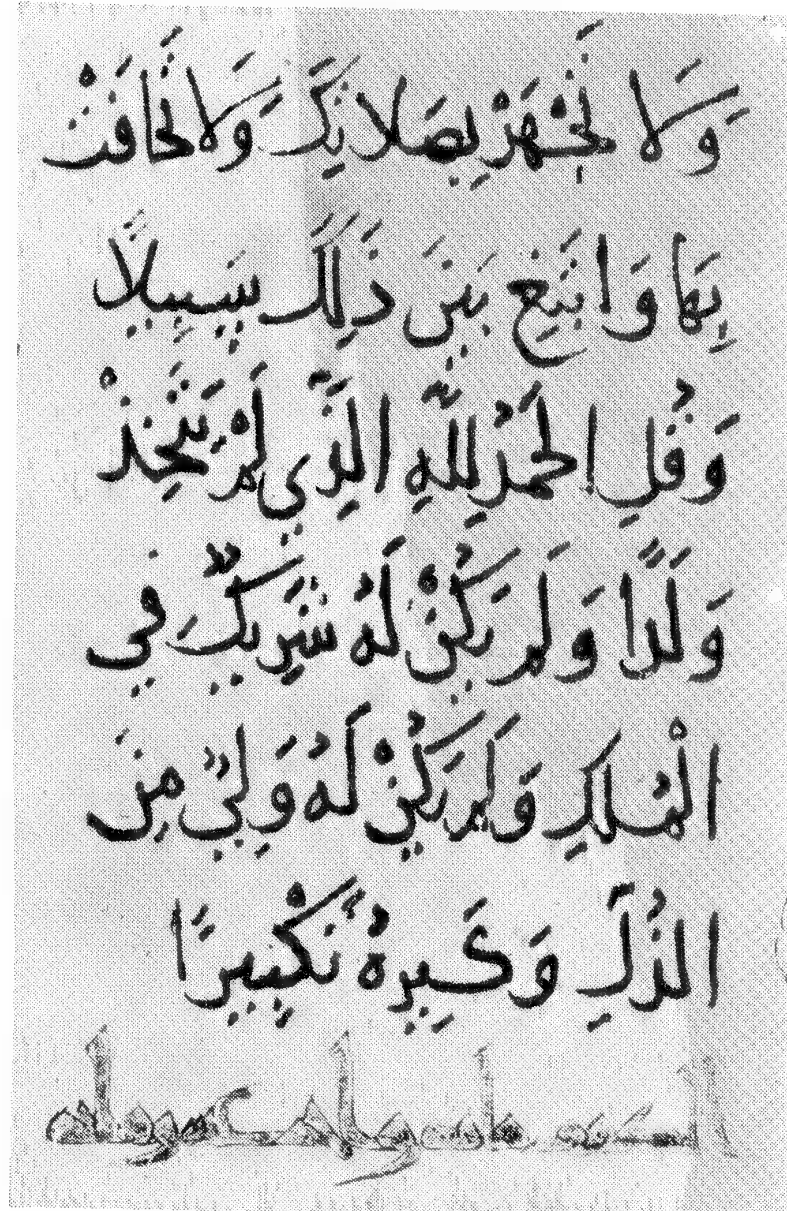 وَلَا تَجْهَرْ بِصَلَاتِكَ وَلَا تُخَافِتْ
بِهَا وَابْتَغِ بَيْنَ ذَلِكَ سَبِيلًا
وَقُلِ الْحَمْدُ لِلَّهِ الَّذِي لَمْ يَتَّخِذْ
وَلَدًا وَلَمْ يَكُنْ لَهُ شَرِيكٌ فِي
الْمُلْكِ وَلَمْ يَكُنْ لَهُ وَلِيٌّ مِنَ
الذُّلِّ وَكَبِّرْهُ تَكْبِيرًا